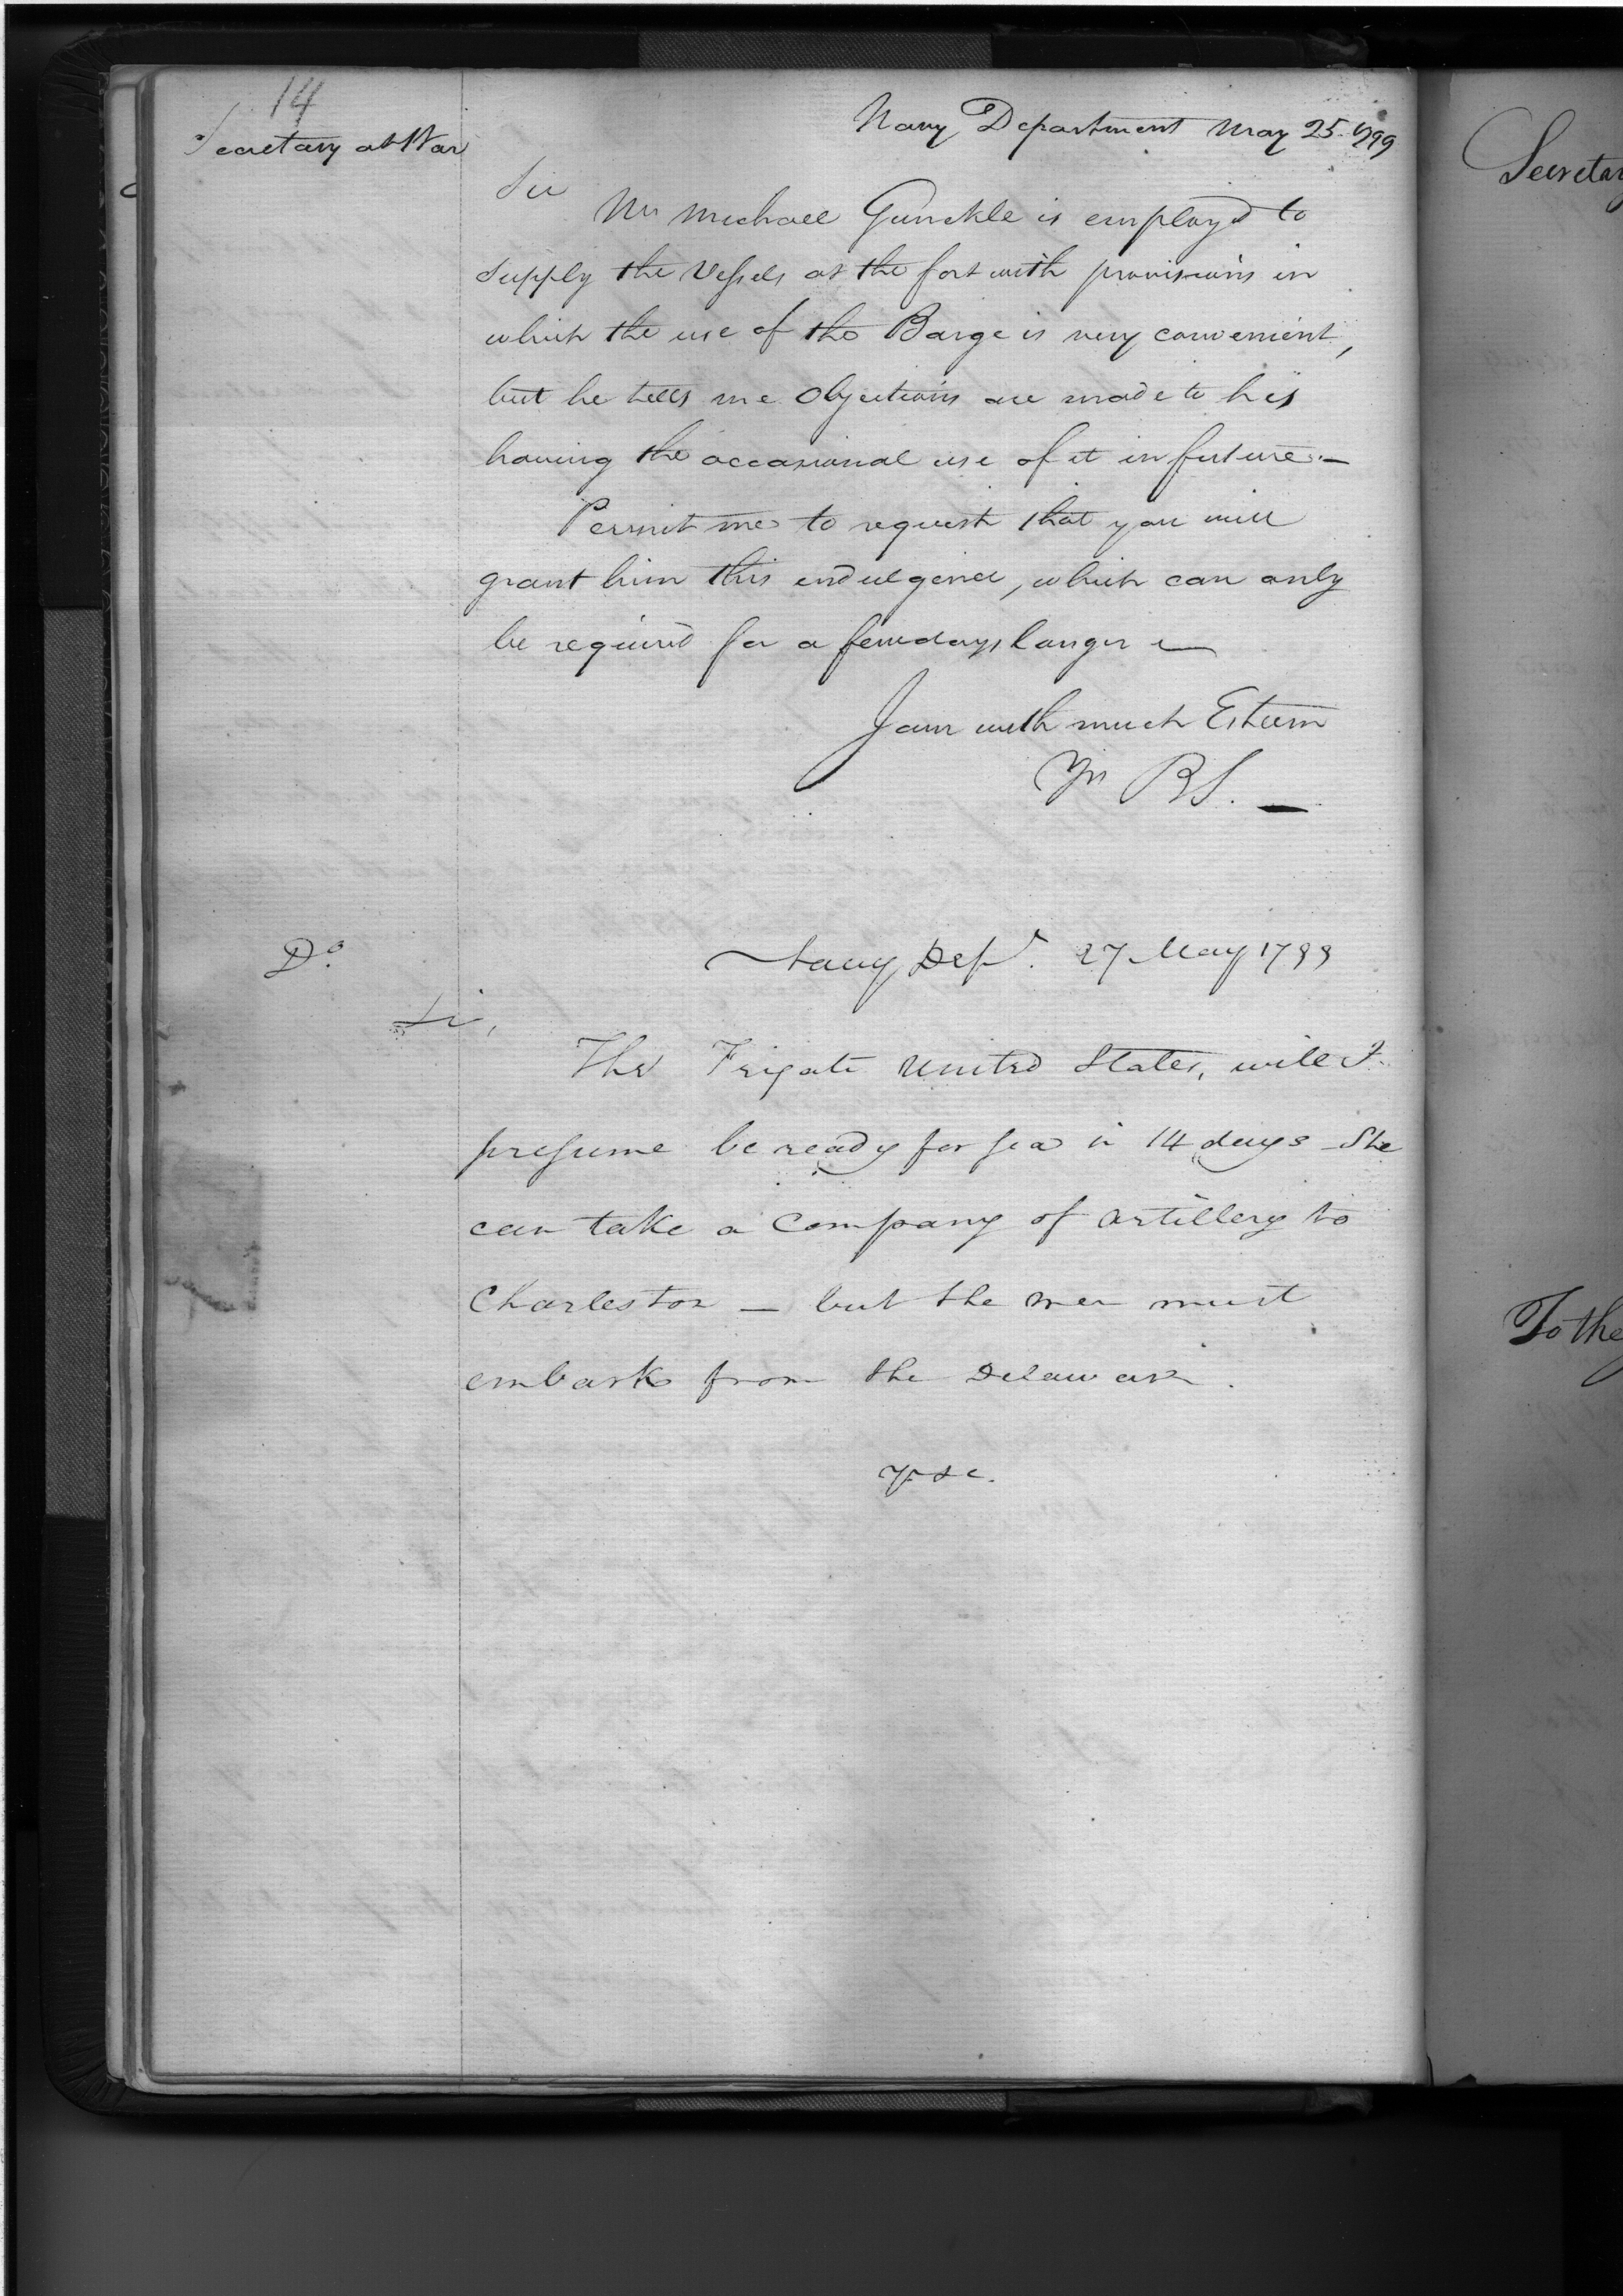 14
Secretary at War
Navy Department May 25. 1799
Sir
Mr Michael Gunckle is employd to
supply the Vessels at the fort with provisions in
which the use of the Barge is very convenient,
but he tells me Objections are made to his
having the occasional use of it in future.—
Permit me to request that you will
grant him this indulgence, which can only
be required for a few days longer —
I am with much Esteem
Yrs BS. —
Do.
Navy Dept. 27 May 1799
Sir,
The Frigate United States, will I
presume be ready for sea in 14 days - She
can take a Company of artillery to
Charleston — but the men must
embark from the Delaware.
yr &c.
Secretar
To the